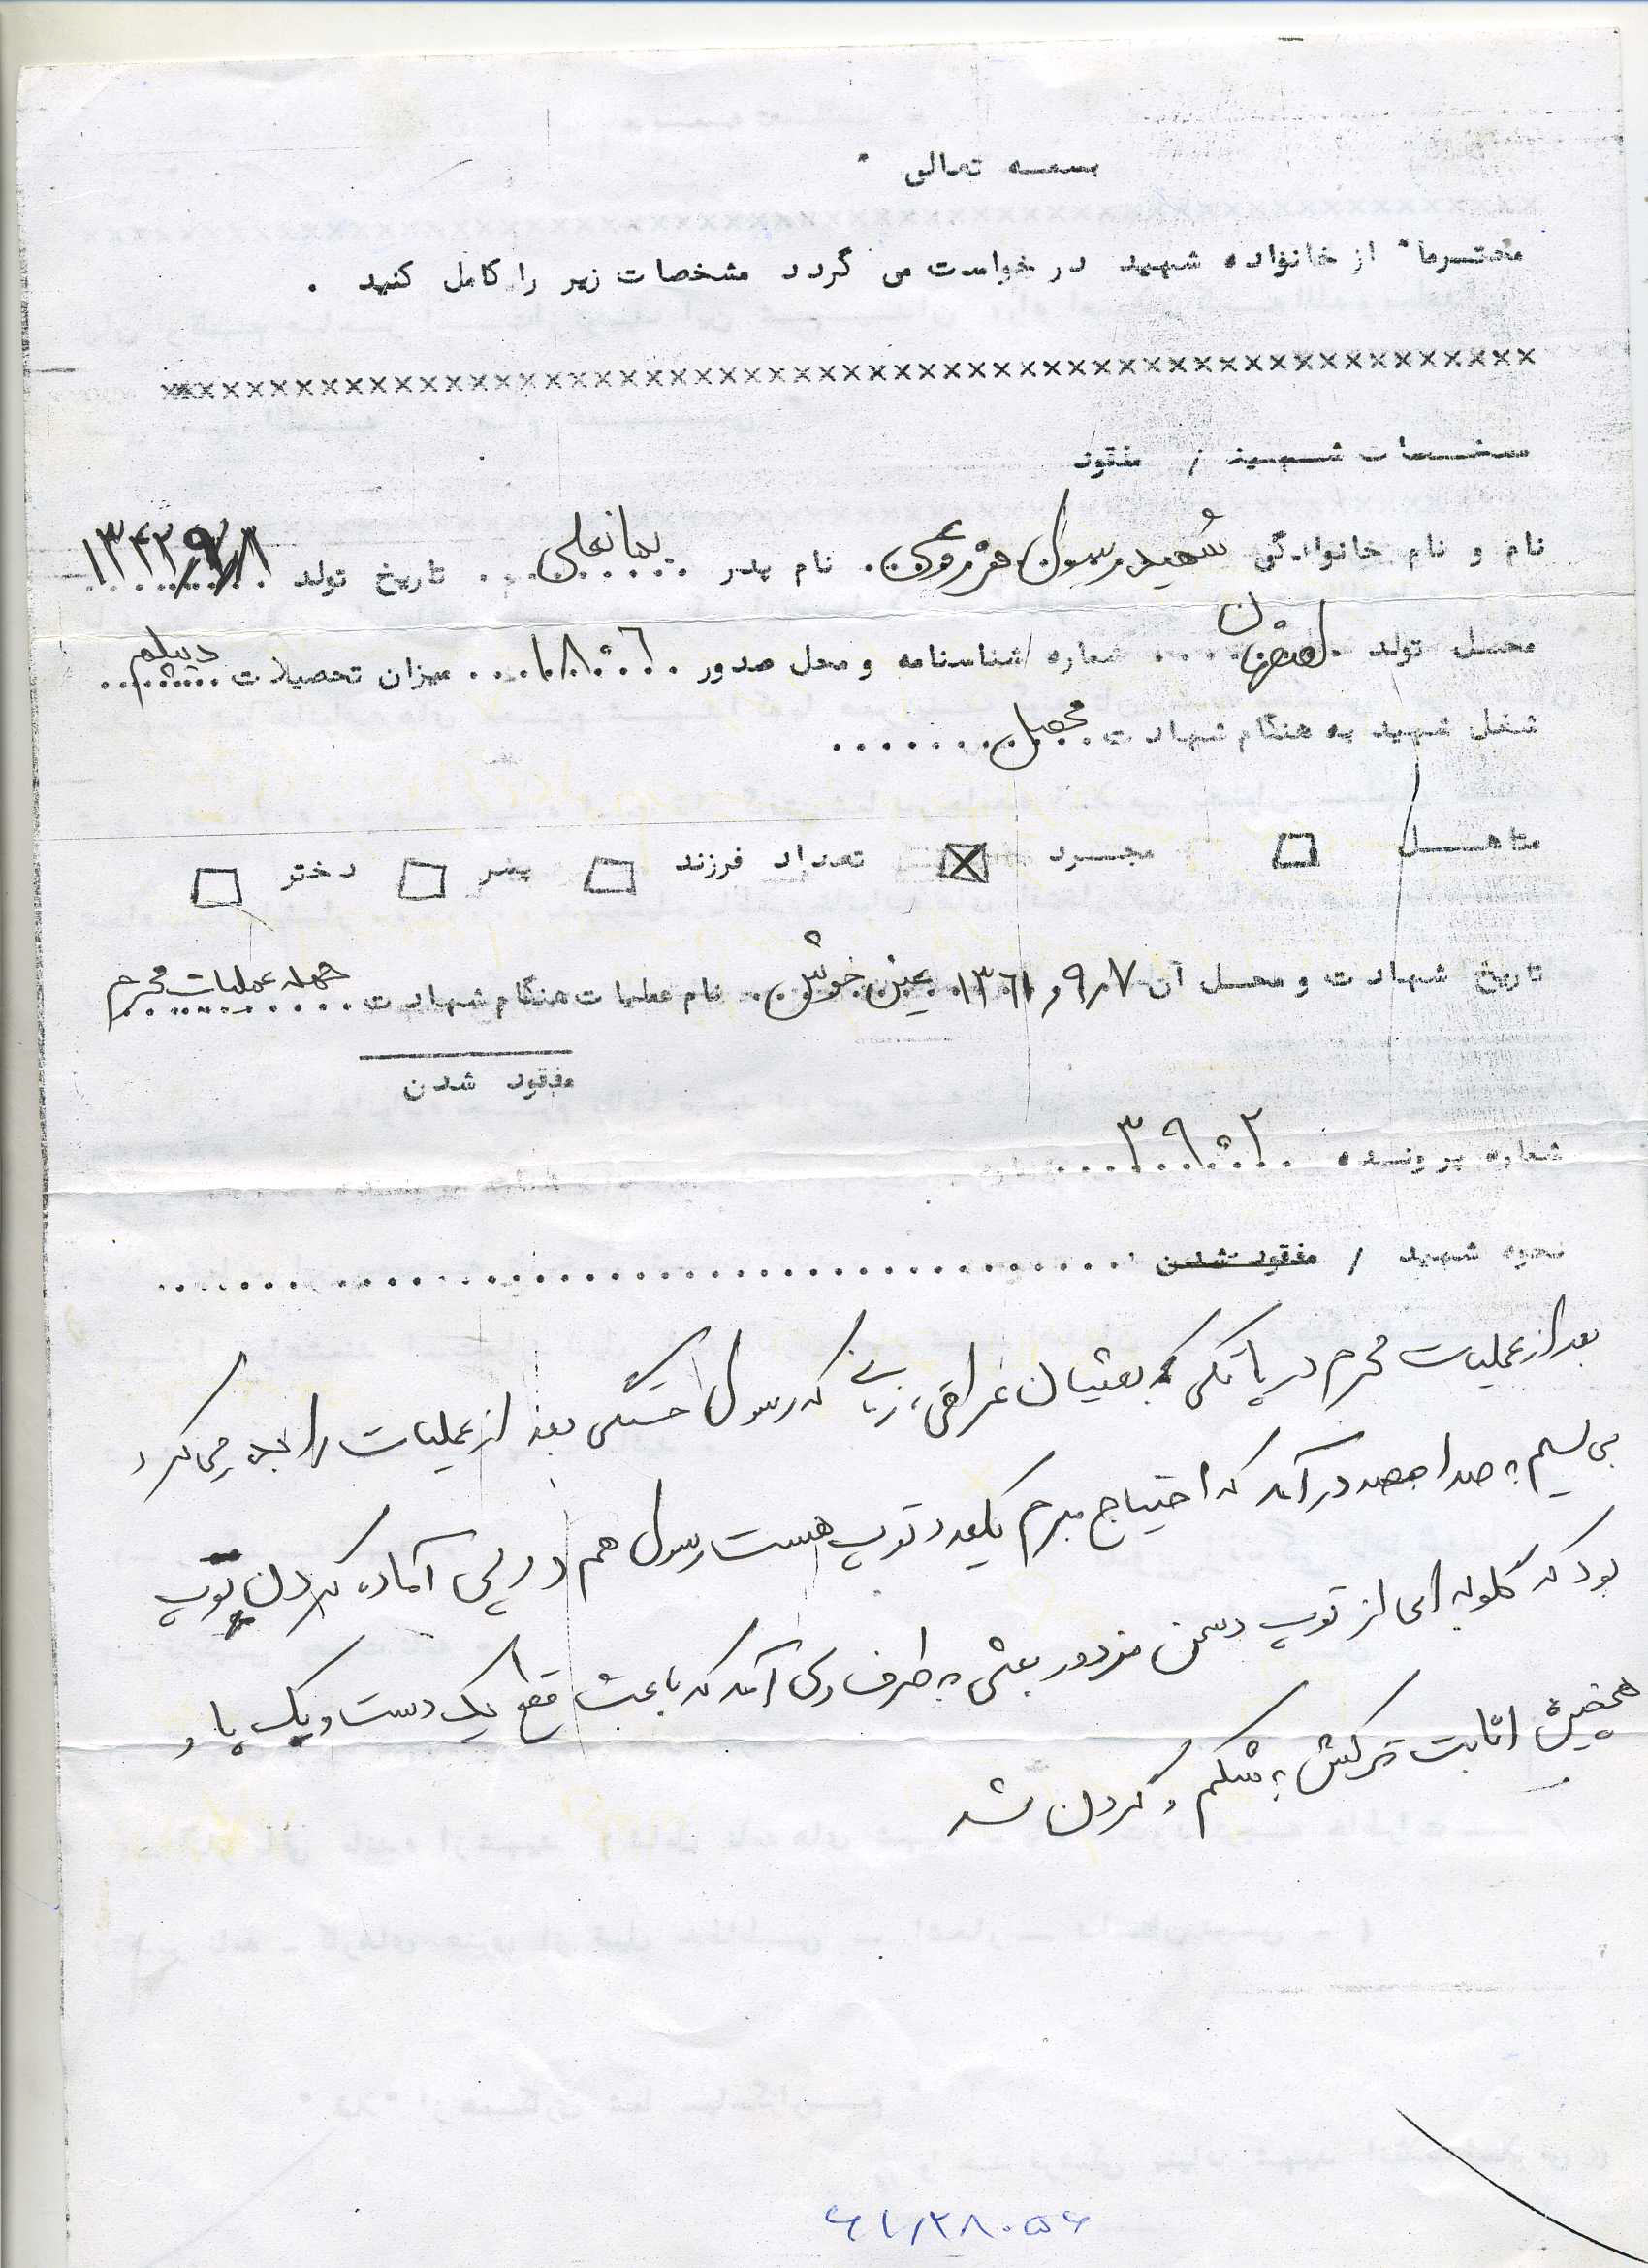 بسمه تعالی
محترما" از خانواده شهید درخواست می گردد مشخصات زیر را کامل کنید .
×××××××××××××××××××××××××××××××××××××××××××××××××××××××
مشخصات شهید / مفقود
نام و نام خانوادگی شهید رسول نام پدر تاریخ تولد ۱۳۴۲/۹/۸
محل تولد اصفهان شماره شناسنامه و محل صدور ۱۸۰۶ میزان تحصیلات دیپلم
شغل شهید به هنگام شهادت محصل
متاهل □ مجرد ☒ تعداد فرزند □ پسر □ دختر □
تاریخ شهادت و محل آن ۹٫۷ و ۱۳۶۱ عین خوش نام عملیات هنگام شهادت حمله عملیات محرم
مفقود شدن
شماره پرونده ۳۹۰۲
نحوه شهید / مفقود شدن
بعد از عملیات محرم در پاتکی که بعثیان عراقی، زمانی که رسول خستگی بعد از عملیات را بدر می کرد
بی سیم به صدا در آمد که احتیاج مبرم یکعدد توپ هست رسول هم در پی آماده کردن توپ
بود که گلوله ای از توپ دشمن مزدور بعثی به طرف وی آمد که باعث قطع یک دست و یک پا و
همچنین اثابت ترکش به شکم و گردن شد
۶۱/۲۸۰۵۶